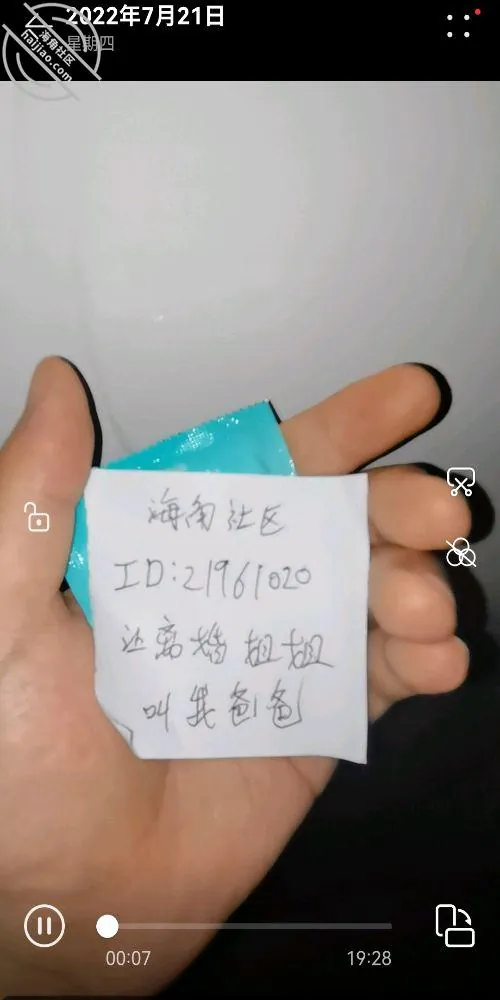 2022年7月21日
星期四
海角社区
haijiao.com
海角社区
ID:21961020
让离婚姐姐
叫我爸爸
00:07
19:28